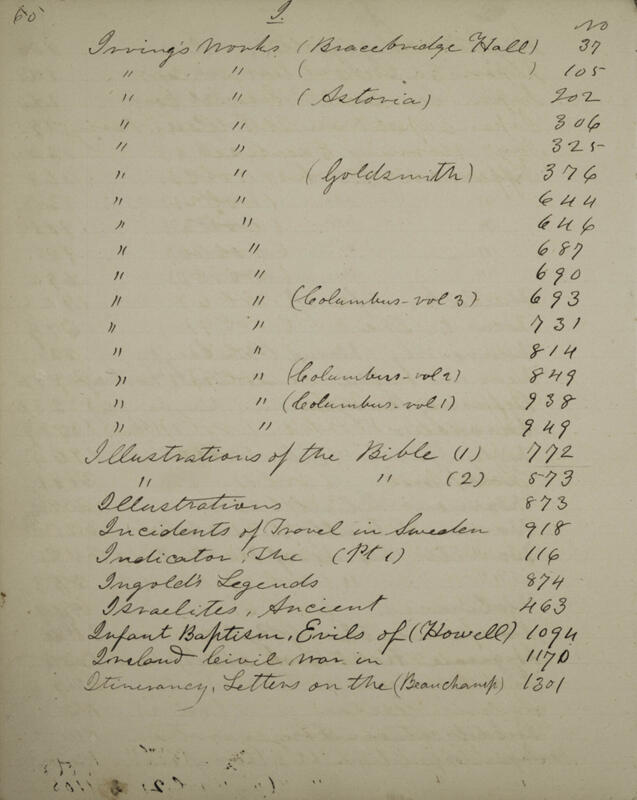 60
I.
No
Irving's Works (Bracebridge Hall) 37
" " ( ) 105
" " (Astoria) 202
" " 306
" " 325
" " (Goldsmith) 376
" " 644
" " 646
" " 687
" " 690
" " (Columbus-vol 3) 693
" " 731
" " 814
" " (Columbus-vol 2) 849
" " (Columbus-vol 1) 938
" " 949
Illustrations of the Bible (1) 772
" " (2) 573
Illustrations 873
Incidents of Travel in Sweden 918
Indicator, The (Pt 1) 116
Ingold's Legends 874
Israelites, Ancient 463
Infant Baptism, Evils of (Howell) 1094
Ireland Civil War in 1170
Itinerancy, Letters on the (Beauchamp) 1301